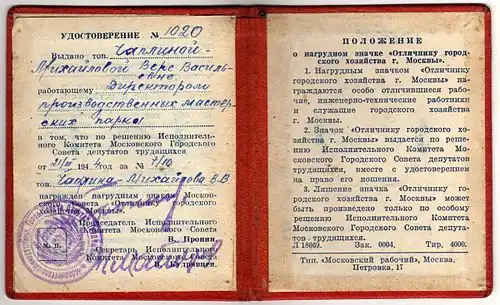 УДОСТОВЕРЕНИЕ № 1020
Выдано тов. Чаплиной-
Михайловой Вере Василь-
евне
работающему Директором
производственных мастер-
ских парка
в том, что по решению Исполнитель-
ного Комитета Московского Городского
Совета депутатов трудящихся
от 21/III 194 г за № 7/10
тов. Чаплина Михайлова В.В.
награжден нагрудным значком Москов-
ского Совета «Отличнику Городского
хозяйства Москвы».
Председатель Исполнительного
Комитета Московского Совета
В. Пронин
Секретарь Исполнительного
Комитета Московского Совета
В. Кудрявцев
М. П.
ПОЛОЖЕНИЕ
о нагрудном значке «Отличнику город-
ского хозяйства г. Москвы».
1. Нагрудным значком «Отличнику
городского хозяйства г. Москвы» на-
граждаются особо отличившиеся рабо-
чие, инженерно-технические работники
и служащие городского хозяйства
г. Москвы.
2. Значок «Отличнику городского хо-
зяйства г. Москвы» выдается по реше-
нию Исполнительного Комитета Мос-
ковского Городского Совета депутатов
трудящихся, вместе с удостоверением
на право его ношения.
3. Лишение значка «Отличнику
городского хозяйства г. Москвы» может
быть произведено только по особому
решению Исполнительного Комитета
Московского Городского Совета депута-
тов трудящихся.
Л 18669. Зак. 0004. Тир. 4000.
Тип. «Московский рабочий», Москва,
Петровка, 17